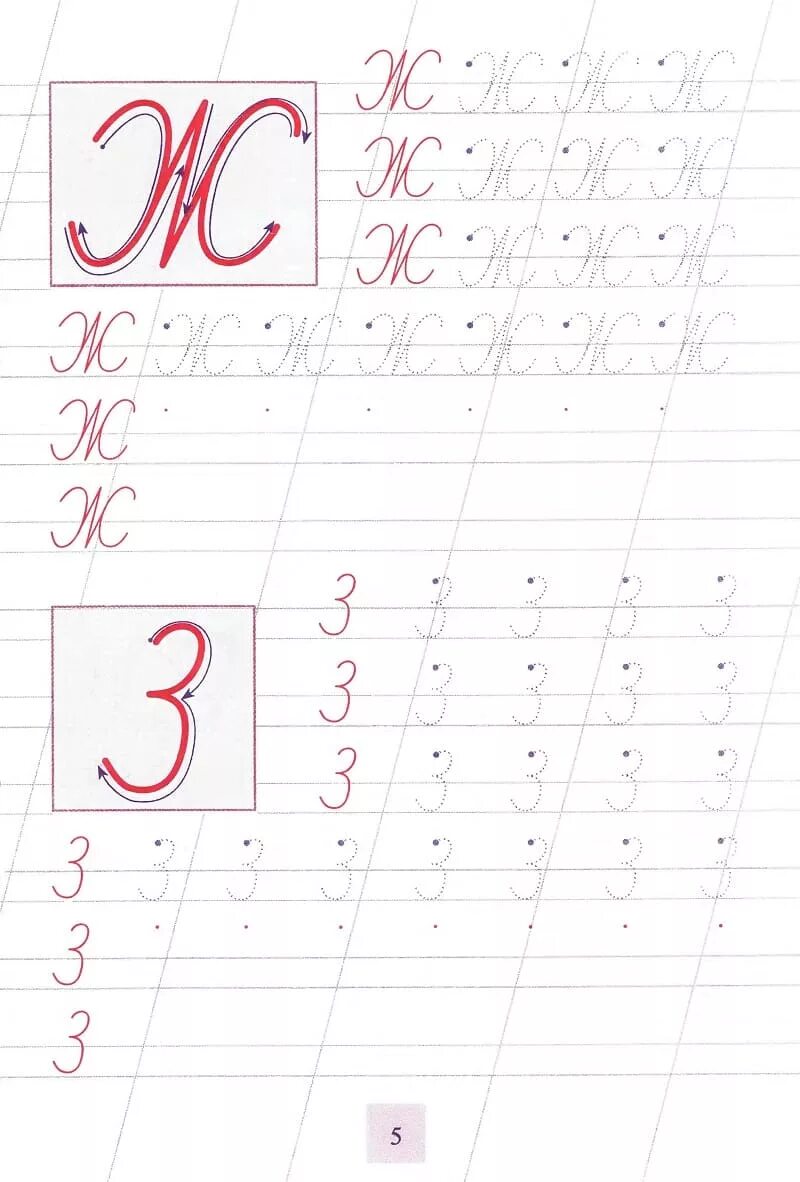 Ж
Ж Ж Ж Ж
Ж Ж Ж Ж
Ж Ж Ж Ж
Ж Ж Ж Ж Ж Ж Ж
Ж
Ж
З
З З З З З
З З З З З
З З З З З
З З З З З З З З
З
З
5